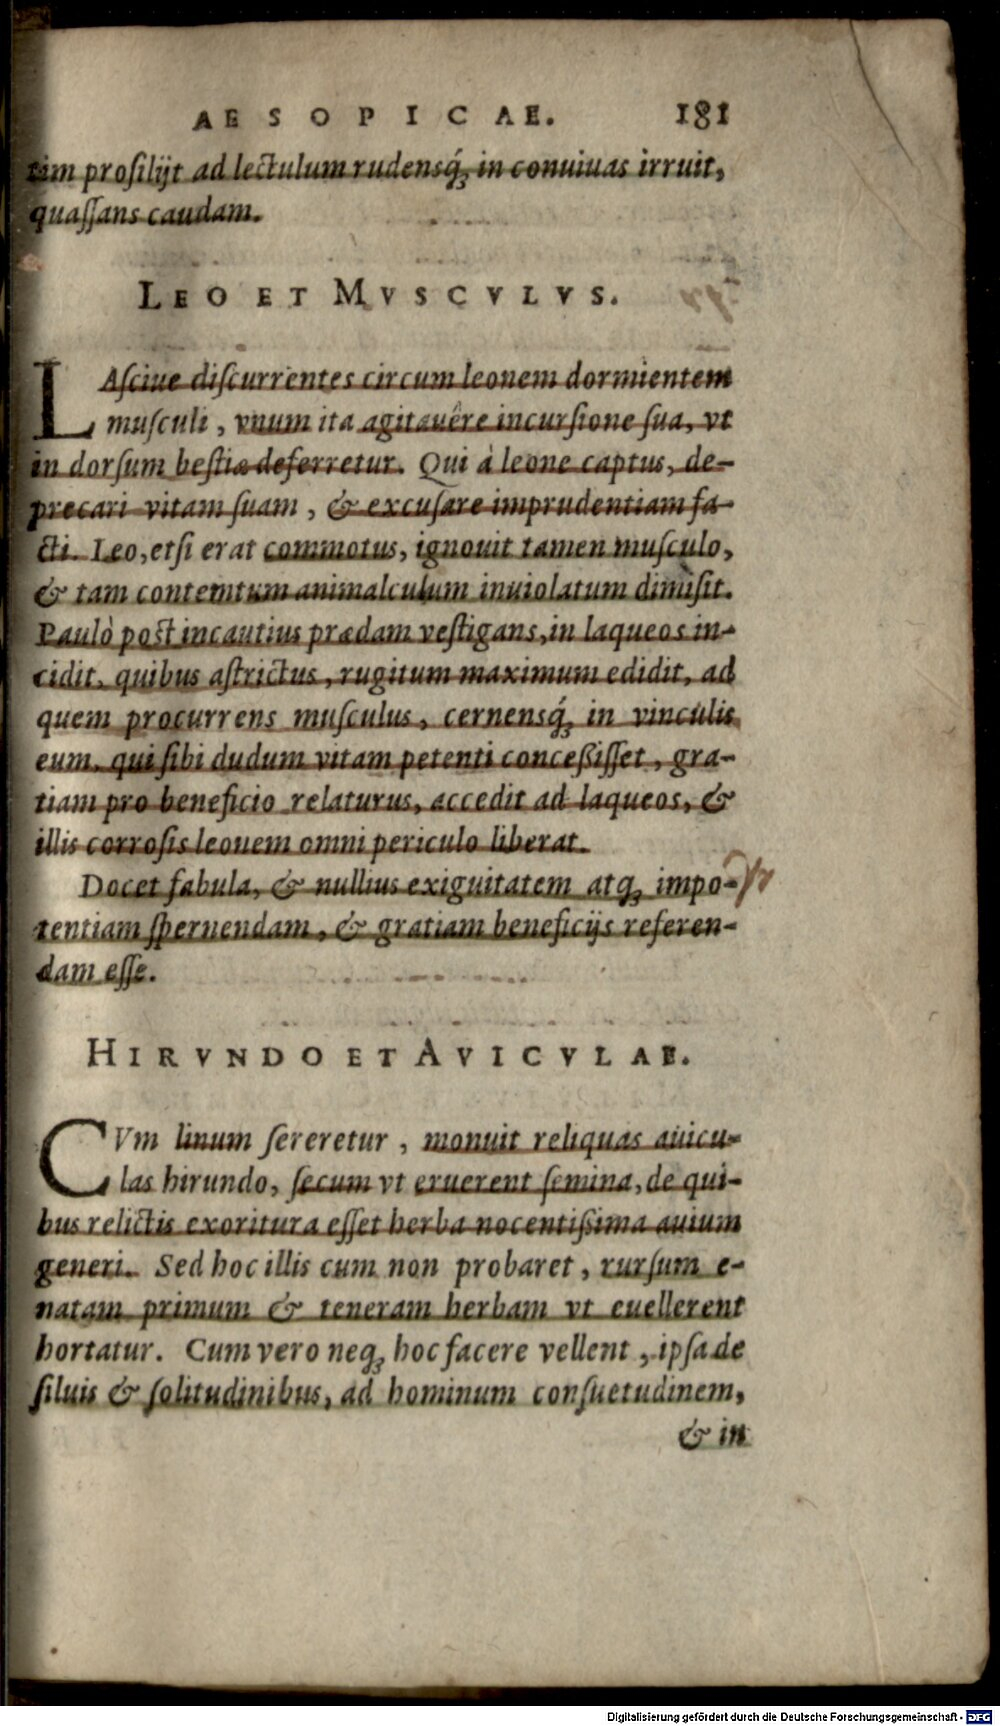 AESOPICAE. 181
tim prosilijt ad lectulum rudensq́; in conuiuas irruit,
quaſſans caudam.
LEO ET MVSCVLVS.
LAſciue diſcurrentes circum leonem dormientem
muſculi, vnum ita agitauêre incurſione ſua, vt
in dorſum beſtiæ deferretur. Qui à leone captus, de-
precari vitam ſuam, & excuſare imprudentiam fa-
cti. Leo, etſi erat commotus, ignouit tamen muſculo,
& tam contemtum animalculum inuiolatum dimiſit.
Paulò post incautius prædam veſtigans, in laqueos in-
cidit, quibus aſtrictus, rugitum maximum edidit, ad
quem procurrens muſculus, cernensq́; in vinculis
eum, qui ſibi dudum vitam petenti conceßiſſet, gra-
tiam pro beneficio relaturus, accedit ad laqueos, &
illis corroſis leonem omni periculo liberat.
Docet fabula, & nullius exiguitatem atq; impo-
tentiam ſpernendam, & gratiam beneficijs referen-
dam eſſe.
HIRVNDO ET AVICVLAE.
CVm linum ſereretur, monuit reliquas auicu-
las hirundo, ſecum vt eruerent ſemina, de qui-
bus relictis exoritura eſſet herba nocentißima auium
generi. Sed hoc illis cum non probaret, rurſum e-
natam primum & teneram herbam vt euellerent
hortatur. Cum vero neq; hoc facere vellent, ipſa de
ſiluis & ſolitudinibus, ad hominum conſuetudinem,
& in
Digitalisierung gefördert durch die Deutsche Forschungsgemeinschaft - DFG